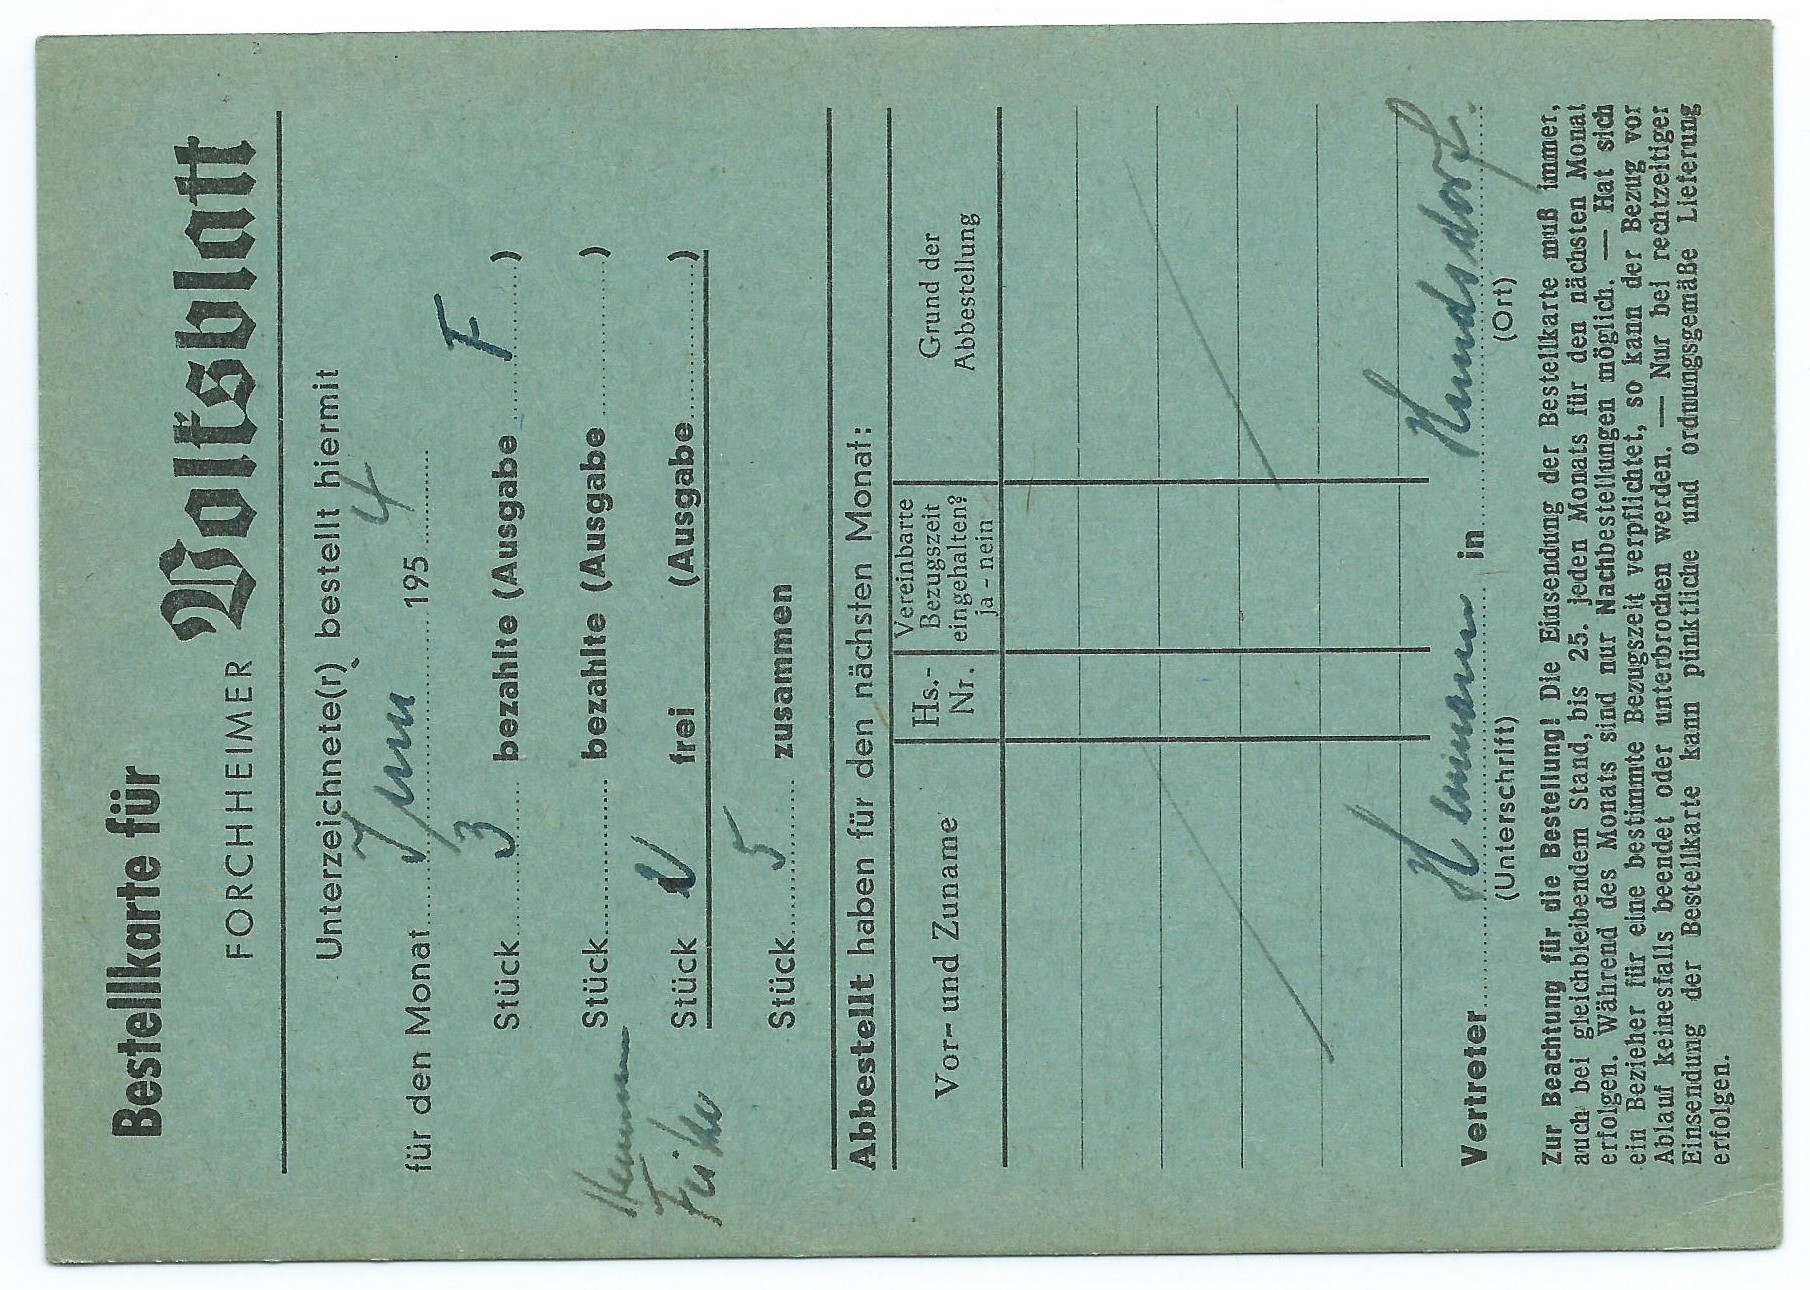 Bestellkarte für
FORCHHEIMER Volksblatt
Unterzeichnete(r) bestellt hiermit
für den Monat Juni 195 4
Stück 3 bezahlte (Ausgabe F )
Stück bezahlte (Ausgabe )
Stück 2 frei (Ausgabe )
Stück 5 zusammen
Abbestellt haben für den nächsten Monat:
Vor- und Zuname
Hs.-
Nr.
Vereinbarte
Bezugszeit
eingehalten?
ja - nein
Grund der
Abbestellung
Vertreter in
(Unterschrift) (Ort)
Zur Beachtung für die Bestellung! Die Einsendung der Bestellkarte muß immer,
auch bei gleichbleibendem Stand, bis 25. jeden Monats für den nächsten Monat
erfolgen. Während des Monats sind nur Nachbestellungen möglich. — Hat sich
ein Bezieher für eine bestimmte Bezugszeit verpflichtet, so kann der Bezug vor
Ablauf keinesfalls beendet oder unterbrochen werden. — Nur bei rechtzeitiger
Einsendung der Bestellkarte kann pünktliche und ordnungsgemäße Lieferung
erfolgen.